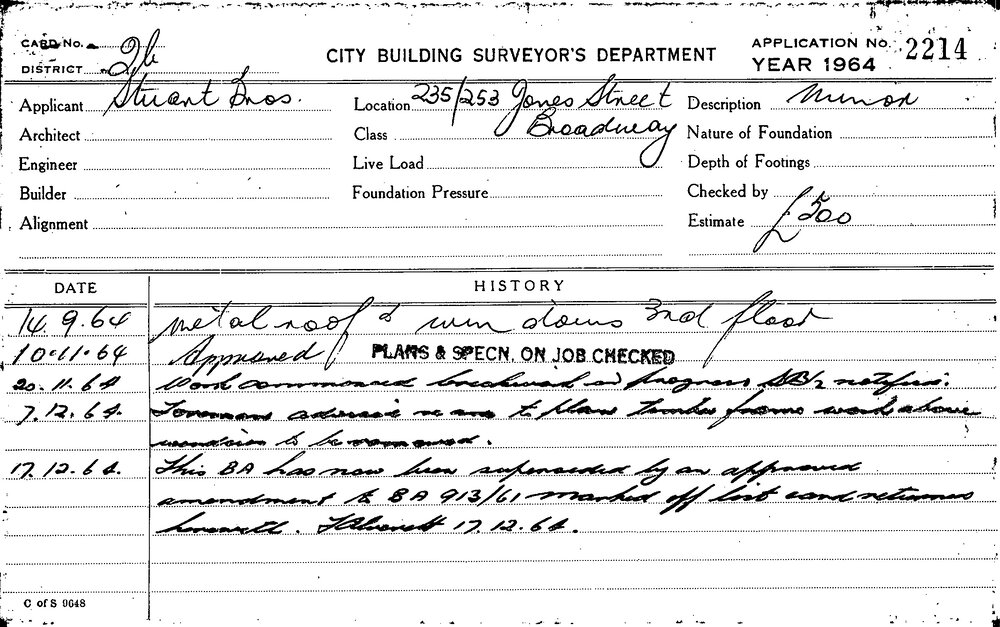 CARD No.
DISTRICT 26
CITY BUILDING SURVEYOR'S DEPARTMENT
APPLICATION No. 2214
YEAR 1964
Applicant Stuart Bros.
Location 235/253 Jones Street
Broadway
Description Minor
Architect
Class
Nature of Foundation
Engineer
Live Load
Depth of Footings
Builder
Foundation Pressure
Checked by
Alignment
Estimate £500
DATE
HISTORY
14.9.64 metal roof & windows 3rd floor
10.11.64 Approved PLANS & SPECN. ON JOB CHECKED
20.11.64 Work commenced brickwork in progress
7.12.64. Foreman to plans timber frame work above
windows to be removed.
17.12.64. This BA has now been superseded by an approved
amendment to BA 913/61 marked off list card returned
herewith. 17.12.64.
C of S 9648